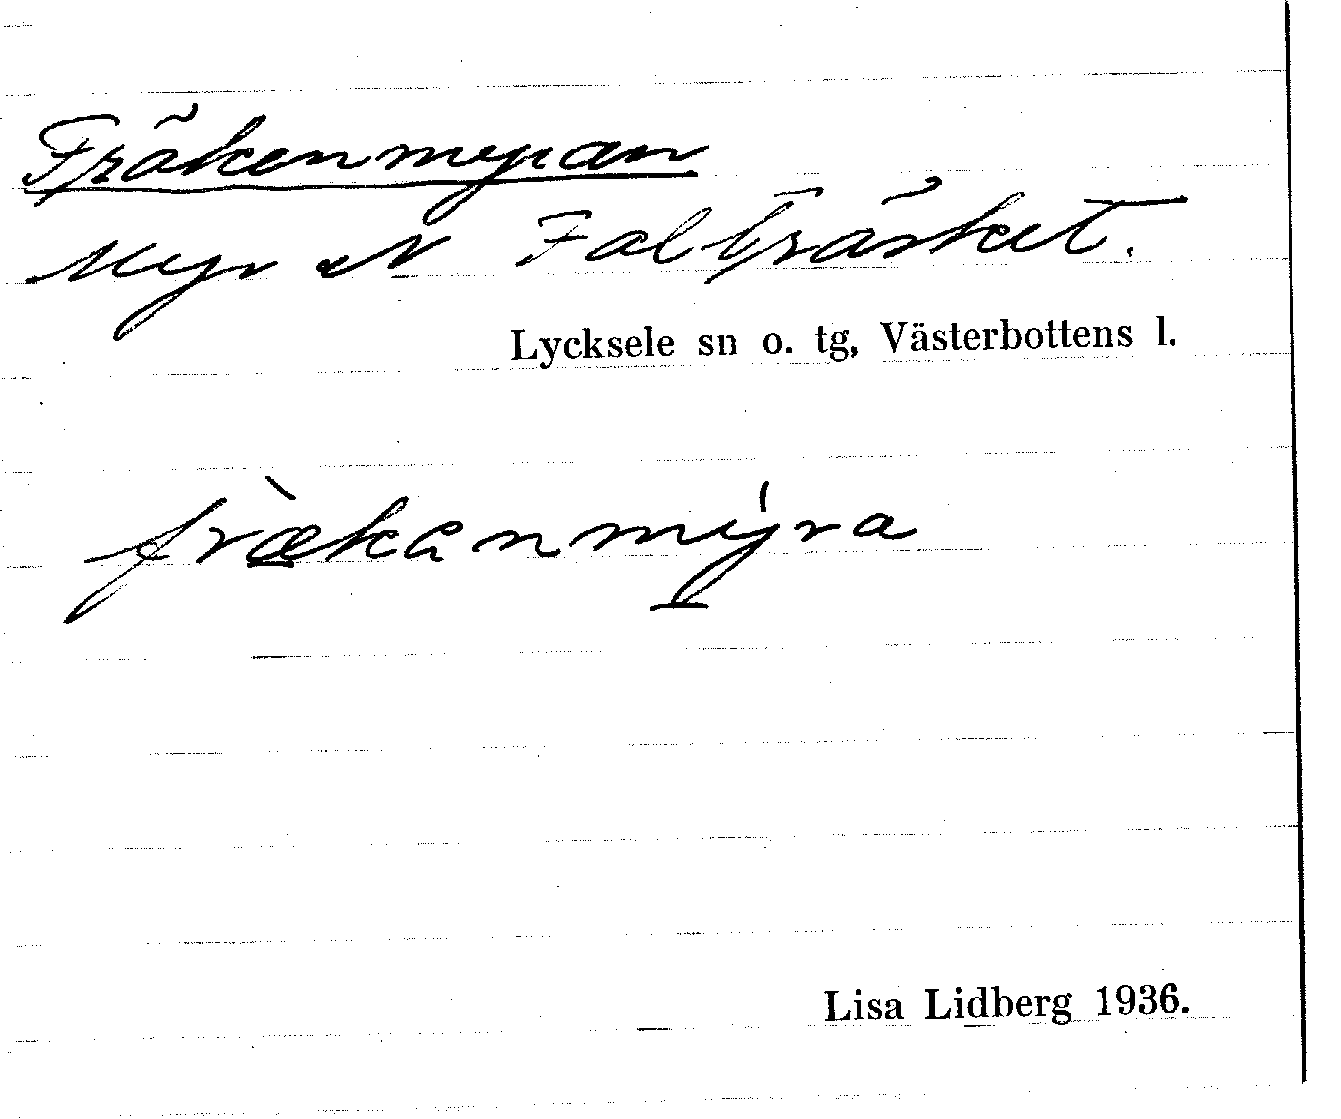 Fräkenmyran
Myr N Falträsket.
Lycksele sn o. tg, Västerbottens l.
fræ̀kanmýra
Lisa Lidberg 1936.